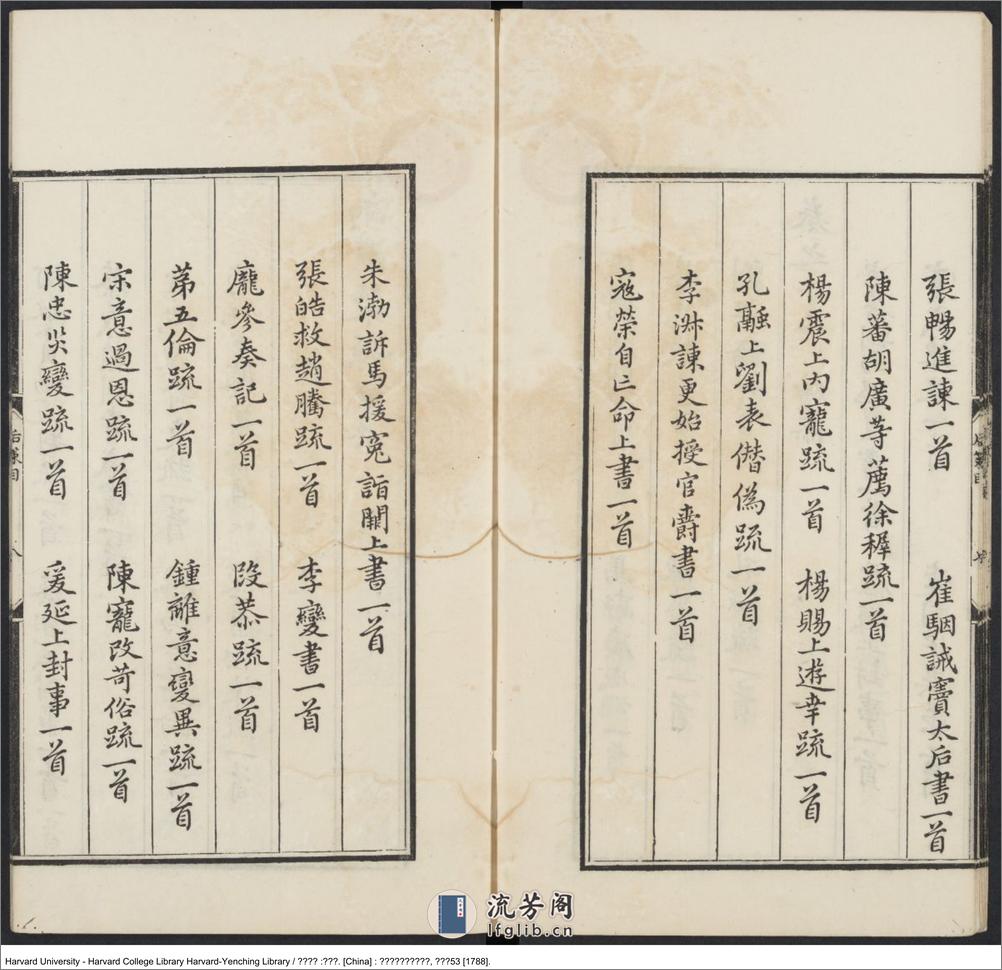 張暢進諫一首 崔駰誡竇太后書一首
陳蕃胡廣等薦徐穉疏一首
楊震上內寵疏一首 楊賜上遊幸疏一首
孔融上劉表僭僞疏一首
李淑諫更始授官爵書一首
寇榮自亡命上書一首
朱渤訴馬援寃詣闕上書一首
張皓救趙騰疏一首 李燮書一首
龐參奏記一首 段恭疏一首
第五倫疏一首 鍾離意變異疏一首
宋意過恩疏一首 陳寵改苛俗疏一首
陳忠災變疏一首 爰延上封事一首
后漢目
八
流芳阁
lfglib.cn
Harvard University - Harvard College Library Harvard-Yenching Library / ???? :???. [China] : ??????????, ???53 [1788].